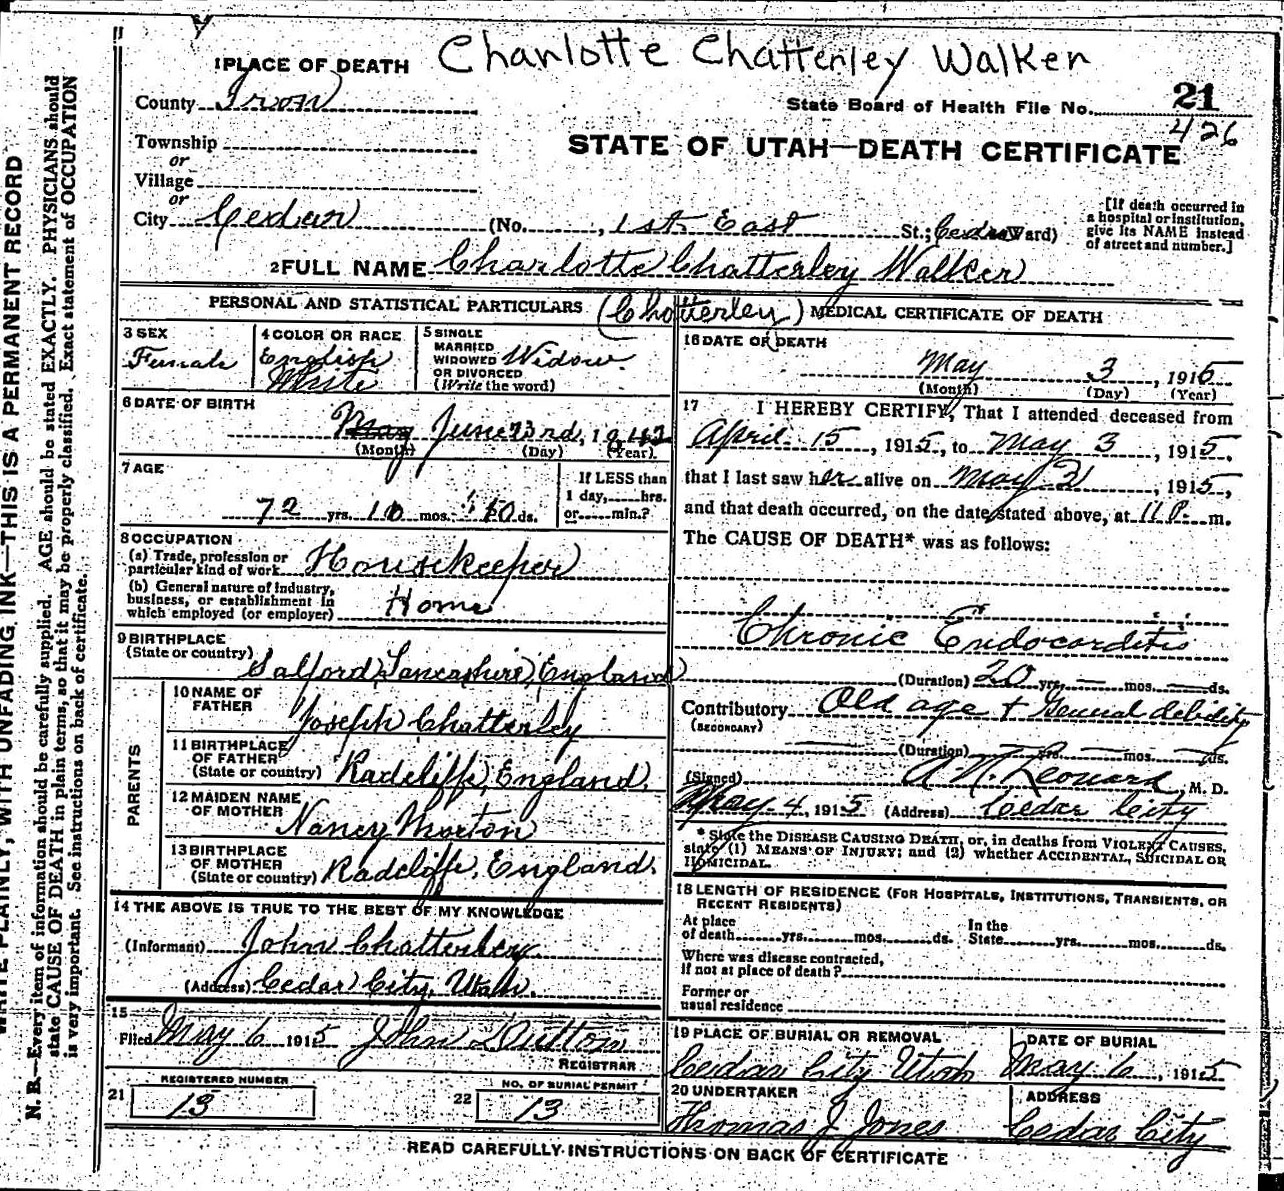 Charlotte Chatterley Walker
1 PLACE OF DEATH
County Iron
State Board of Health File No. 21
426
Township
or
Village
or
STATE OF UTAH—DEATH CERTIFICATE
City Cedar (No. , 1st East St.; Cedar Ward)
[If death occurred in a hospital or institution, give its NAME instead of street and number.]
2 FULL NAME Charlotte Chatterley Walker
(Chatterley)
PERSONAL AND STATISTICAL PARTICULARS
3 SEX
Female
4 COLOR OR RACE
English
White
5 SINGLE
MARRIED
WIDOWED
OR DIVORCED
(Write the word)
Widow
6 DATE OF BIRTH
May June 23rd, 1842
(Month) (Day) (Year)
7 AGE
72 yrs. 10 mos. 10 ds.
If LESS than
1 day, hrs.
or min.?
8 OCCUPATION
(a) Trade, profession or
particular kind of work Housekeeper
(b) General nature of industry,
business, or establishment in
which employed (or employer) Home
9 BIRTHPLACE
(State or country) Salford, Lancashire, England
PARENTS
10 NAME OF
FATHER Joseph Chatterley
11 BIRTHPLACE
OF FATHER
(State or country) Radcliffe, England.
12 MAIDEN NAME
OF MOTHER Nancy Morton
13 BIRTHPLACE
OF MOTHER
(State or country) Radcliffe, England.
14 THE ABOVE IS TRUE TO THE BEST OF MY KNOWLEDGE
(Informant) John Chatterley
(Address) Cedar City, Utah.
15
Filed May 6 1915 John S Dutton
REGISTRAR
21 REGISTERED NUMBER
13
22 NO. OF BURIAL PERMIT
13
MEDICAL CERTIFICATE OF DEATH
16 DATE OF DEATH
May 3, 1915
(Month) (Day) (Year)
17 I HEREBY CERTIFY, That I attended deceased from
April 15, 1915, to May 3, 1915,
that I last saw her alive on May 2, 1915,
and that death occurred, on the date stated above, at 11 P. m.
The CAUSE OF DEATH* was as follows:
Chronic Endocarditis
(Duration) 20 yrs. — mos. — ds.
Contributory Old age & General debility
(SECONDARY)
(Duration) yrs. — mos. ds.
(Signed) A. N. Leonard, M. D.
May 4, 1915 (Address) Cedar City
* State the DISEASE CAUSING DEATH, or, in deaths from VIOLENT CAUSES,
state (1) MEANS OF INJURY; and (2) whether ACCIDENTAL, SUICIDAL OR
HOMICIDAL.
18 LENGTH OF RESIDENCE (FOR HOSPITALS, INSTITUTIONS, TRANSIENTS, OR
RECENT RESIDENTS)
At place
of death yrs. mos. ds.
In the
State yrs. mos. ds.
Where was disease contracted,
if not at place of death?
Former or
usual residence
19 PLACE OF BURIAL OR REMOVAL
Cedar City Utah
DATE OF BURIAL
May 6, 1915
20 UNDERTAKER
Thomas J Jones
ADDRESS
Cedar City
READ CAREFULLY INSTRUCTIONS ON BACK OF CERTIFICATE
WRITE PLAINLY, WITH UNFADING INK—THIS IS A PERMANENT RECORD
N. B.—Every item of information should be carefully supplied. AGE should be stated EXACTLY. PHYSICIANS should
state CAUSE OF DEATH in plain terms, so that it may be properly classified. Exact statement of OCCUPATION
is very important. See instructions on back of certificate.